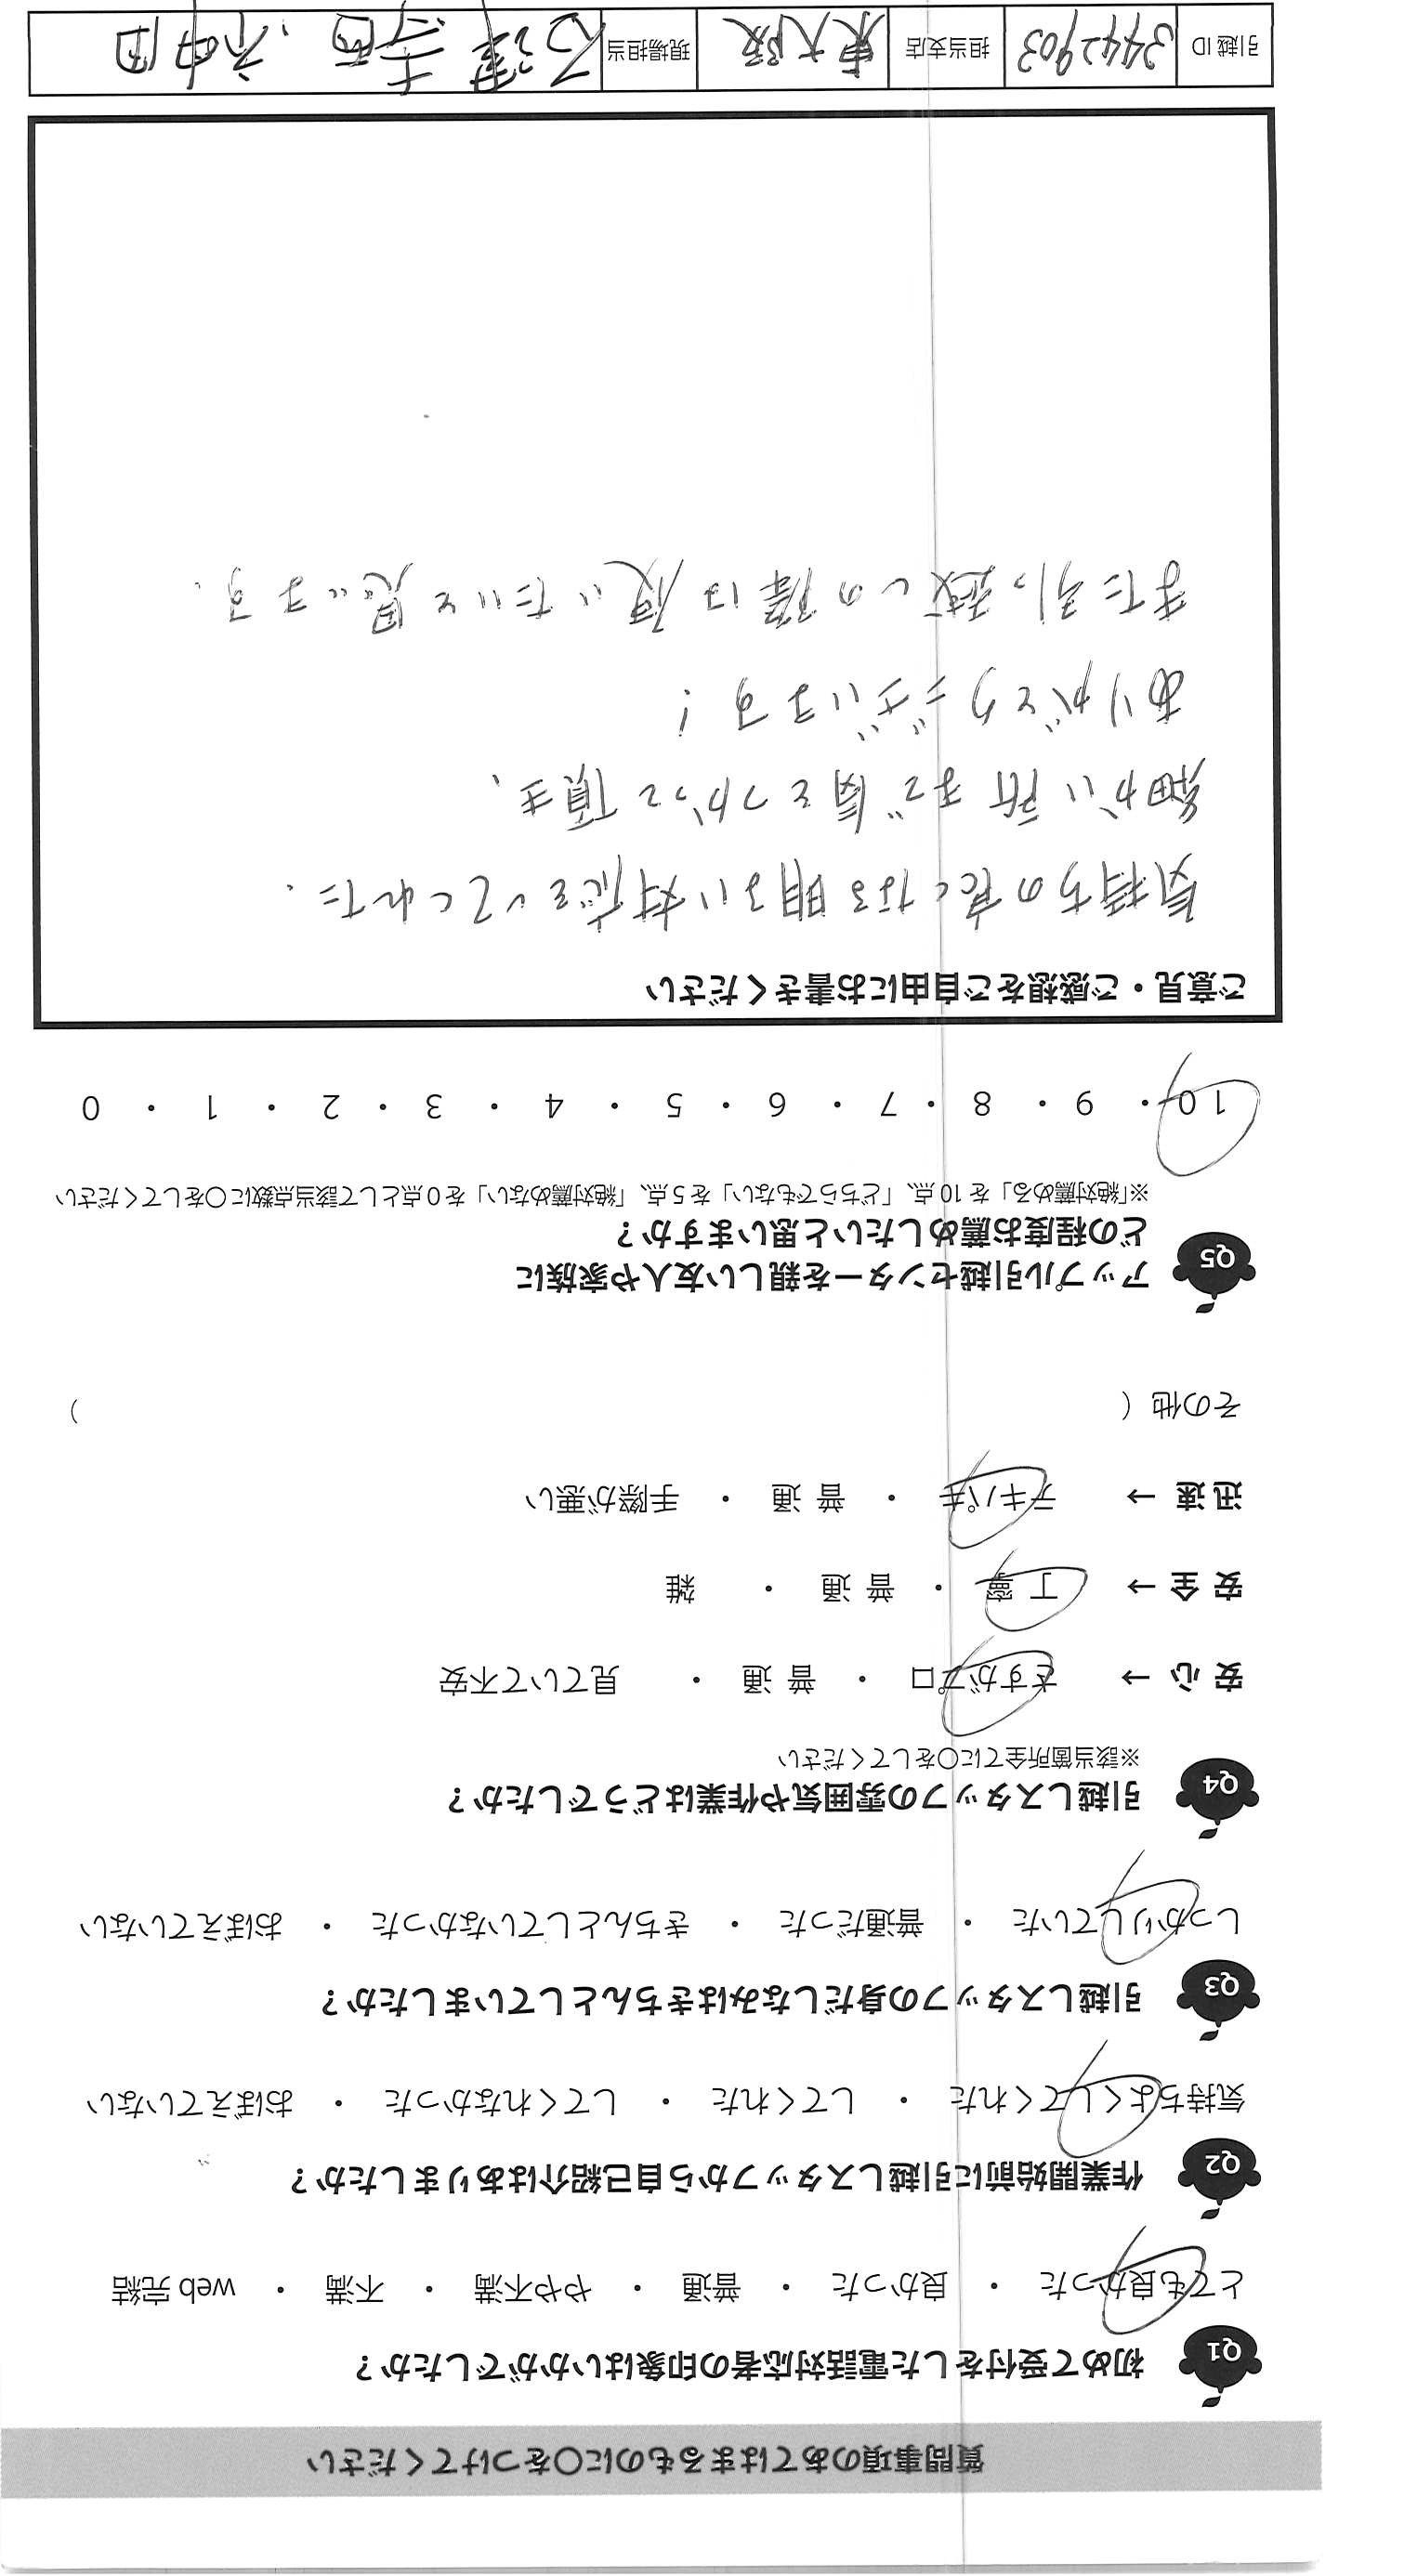 質問事項のあてはまるものに○をつけてください
Q1 初めて受付をした電話対応者の印象はいかがでしたか？
とても良かった ・ 良かった ・ 普通 ・ やや不満 ・ 不満 ・ web 完結
Q2 作業開始前に引越しスタッフから自己紹介はありましたか？
気持ちよくしてくれた ・ してくれた ・ してくれなかった ・ おぼえていない
Q3 引越しスタッフの身だしなみはきちんとしていましたか？
しっかりしていた ・ 普通だった ・ きちんとしていなかった ・ おぼえていない
Q4 引越しスタッフの雰囲気や作業はどうでしたか？
※該当箇所全てに○をしてください
安 心 → さすがプロ ・ 普 通 ・ 見ていて不安
安 全 → 丁 寧 ・ 普 通 ・ 雑
迅 速 → テキパキ ・ 普 通 ・ 手際が悪い
その他（ ）
Q5 アップル引越センターを親しい友人や家族に
どの程度お薦めしたいと思いますか？
※「絶対薦める」を 10 点、「どちらでもない」を 5 点、「絶対薦めない」を 0 点として該当点数に○をしてください
10 ・ 9 ・ 8 ・ 7 ・ 6 ・ 5 ・ 4 ・ 3 ・ 2 ・ 1 ・ 0
ご意見・ご感想をご自由にお書きください
気持ちの良くなる明るい対応をしてくれた.
細かい所まで気をつかって頂き、
ありがとうございます！
また引っ越しの際は使いたいと思います.
引越 ID 3442903 担当支店 東大阪 現場担当 寺西. 神田